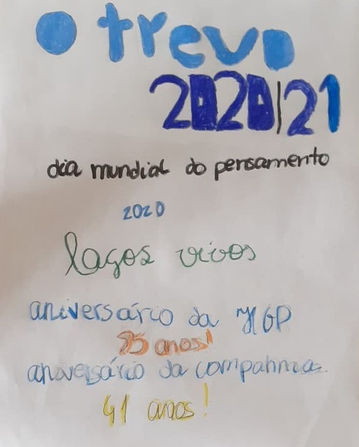 O trevo
2020/21
dia mundial do pensamento
2020
lagos vivos
aniversário da
anos!
aniversário da companhia.
41 anos!